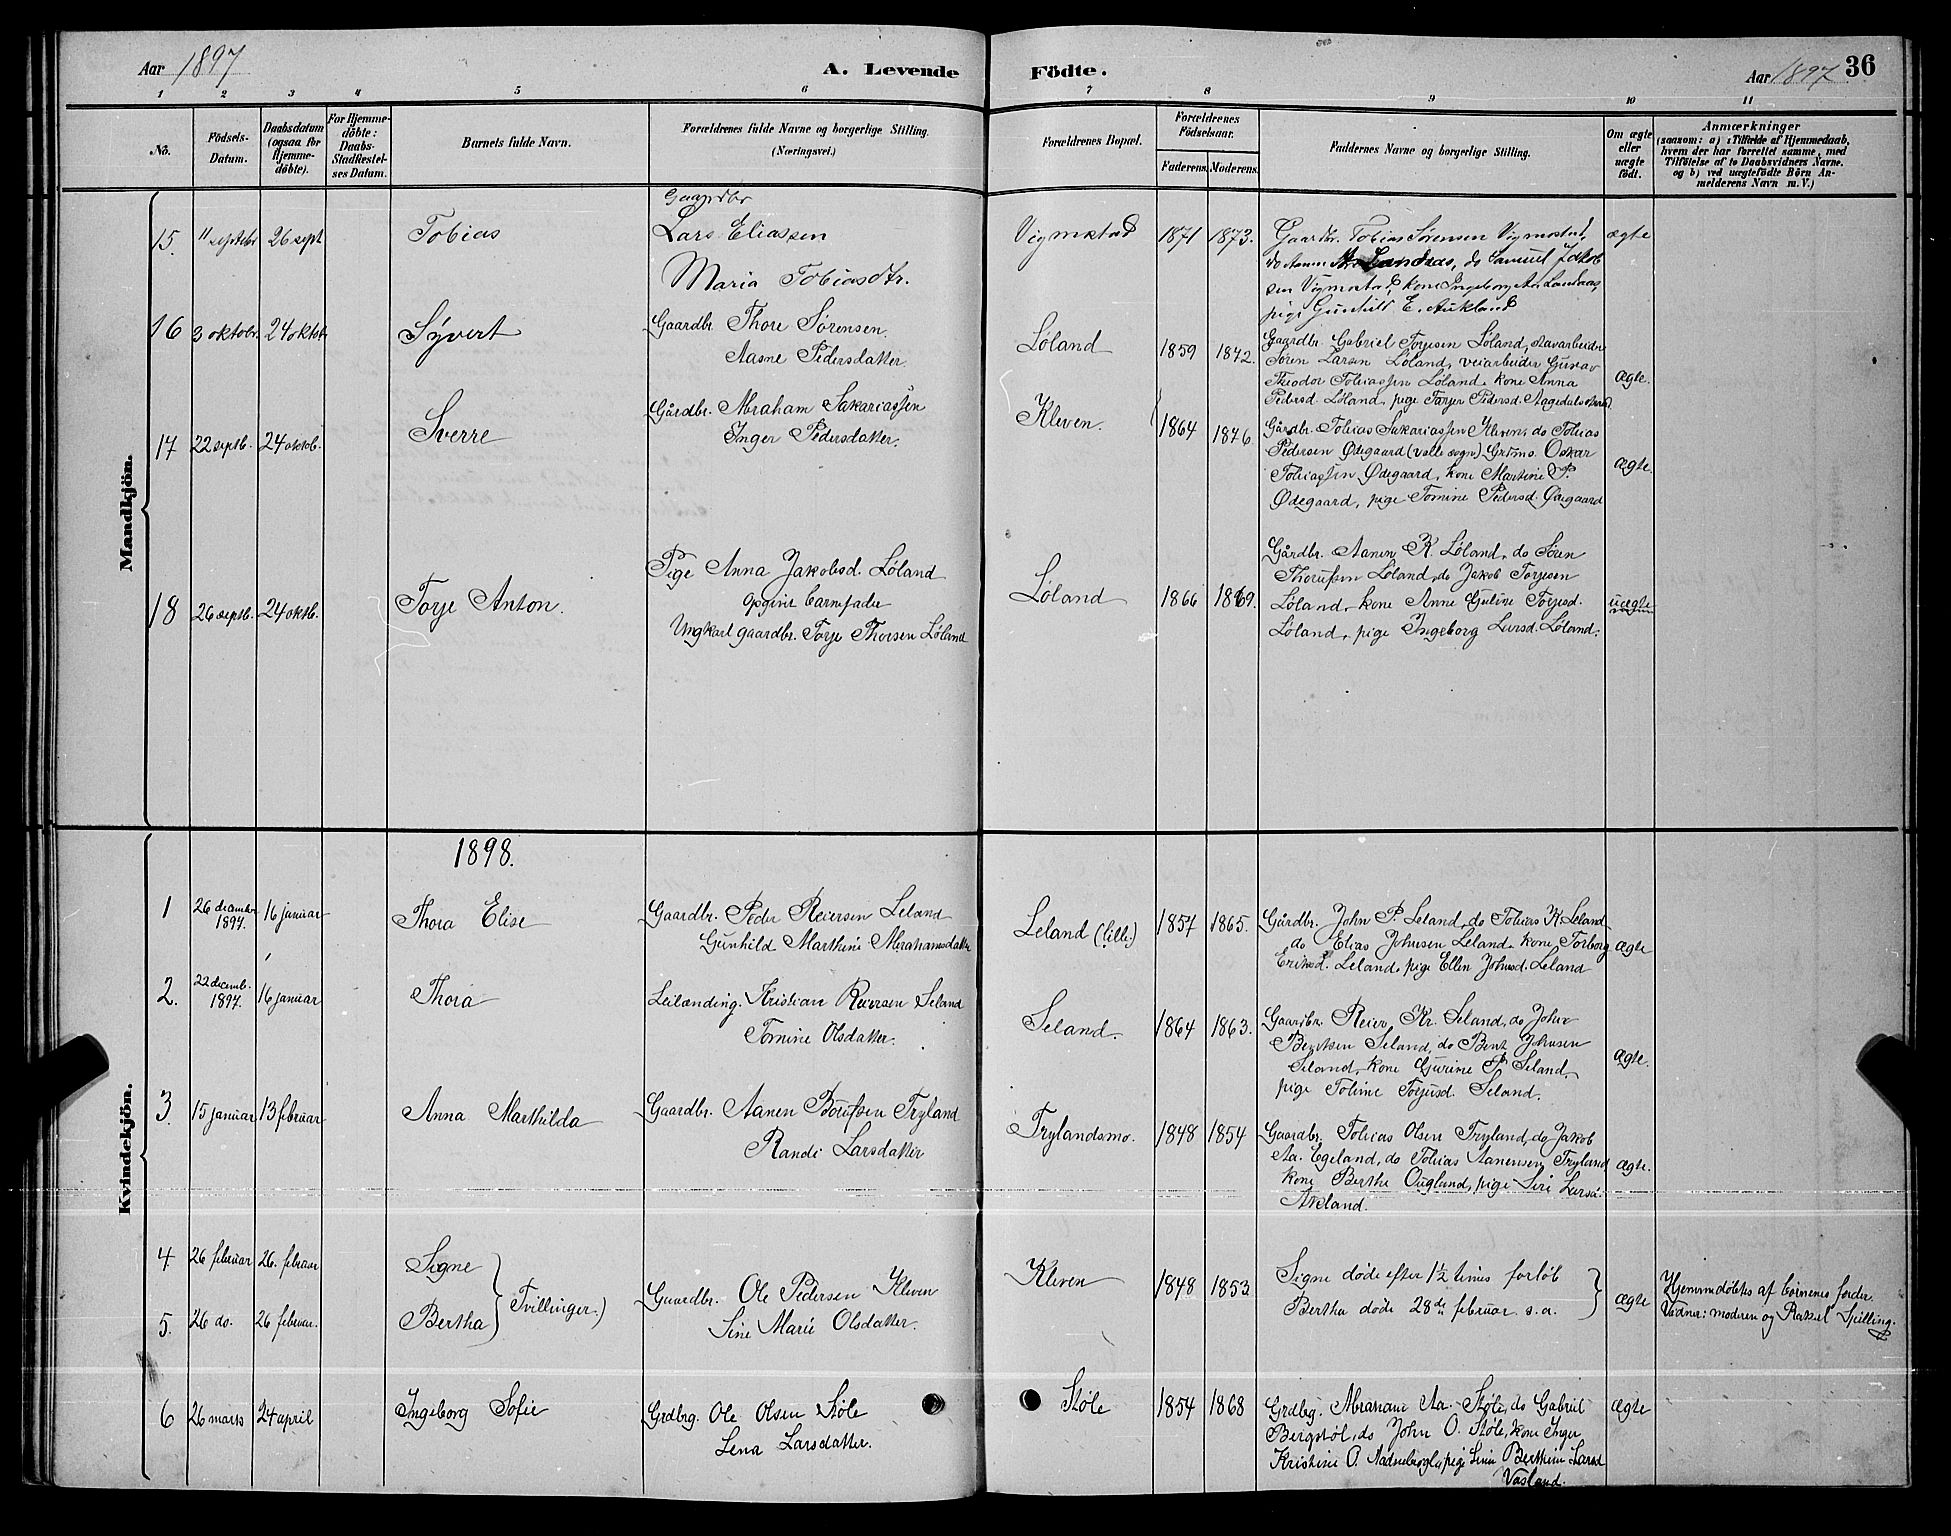 Aar 1897
A. Levende Födte.
Aar 1897 36
1 2 3 4 5 6 7 8 9 10 11
No. Födsels-Datum. Daabsdatum (ogsaa for Hjemmedöbte). For Hjemmedöbte: Daabs-Stadfæstelses Datum. Barnets fulde Navn. Forældrenes fulde Navne og borgerlige Stilling. (Næringsvei.) Forældrenes Bopæl. Forældrenes Födselsaar. Faderens. Moderens. Faddernes Navne og borgerlige Stilling. Om ægte eller uægte födt. Anmærkninger (saasom: a) i Tilfælde af Hjemmedaab, hvem der har forrettet samme, med Tilföielse af to Daabsvidners Navne. og b) ved uægtefödte Börn Anmelderens Navn m. V.)
Mandkjön.
15. 11 septebr 26 sept Tobias
Gaardbr
Lars Eliassen
Maria Tobiasdtr.
Vigmostad 1871 1873.
Gaardbr. Tobias Sørensen Vigmostad,
do Aanen Landaas, do Samuel Jakob
sen Vigmostad, kone Ingeborg Aa. Landaas,
pige Gunhild E. Aukland
ægte
16 3 oktobr. 24 oktobr Sÿvert
Gaardbr. Thore Sørensen.
Aasne Pedersdatter.
Løland 1859 1842.
Gaardbr. Gabriel Torjesen Løland, stavarbeider
Søren Larsen Løland, veiarbeider Gustav
Theodor Tobiassen Løland, kone Anna
Pedersd. Løland, pige Torjer Pedersd. Aagedalstrand.
ægte.
17 22 septb. 24 oktob. Sverre
Gårdbr. Abraham Sakariassen
Inger Pedersdatter.
Kleven. 1864 1876.
Gårdbr. Tobias Sakariassen Kleven, do Tobias
Pedersen Ødegaard (valle sogn). Grdms. Oskar
Tobiassen Ødegaard, kone Martine P.
Ødegaard, pige Tomine Pedersd. Ødegaard
ægte.
18 26 septb. 24 oktb. Torje Anton.
Pige Anna Jakobsd. Løland
opgiver barnefader
Ungkarl gaardbr. Torje Thorsen Løland
Løland 1866 1869.
Gårdbr. Aanen K. Løland, do Søren
Thorussen Løland, do Jakob Torjesen
Løland, kone Anne Guline Torjesd.
Løland, pige Ingeborg Larsd. Løland.
uægte
Kvindekjön.
1898.
1 26 december 1897. 16 januar Thora Elise
Gaardbr. Peder Reiersen Leland
Gunhild Marthine Abrahamsdatter
Leland (lille) 1857 1865.
Gårdbr. John P. Leland, do Tobias K. Leland
do Elias Johnsen Leland, kone Torborg
Eriksd. Leland, pige Ellen Johnsd. Leland
ægte
2. 22 decemb. 1897. 16 januar Thora
Leilænding. Kristian Reiersen Seland
Tomine Olsdatter.
Seland. 1864 1863.
Gaardbr. Reier Kr. Seland, do John
Bentsen Seland, do Bent Johnsen
Seland, kone Gjurine P. Seland,
pige Toline Torjusd. Seland.
ægte.
3. 15 januar 13 februar Anna Marthilda
Gaardbr. Aanen Borufsen Tryland
Randi Larsdatter
Trylandsmo. 1848 1854
Gaardbr. Tobias Olsen Tryland, do Jakob
Aa. Egeland, do Tobias Aanensen Tryland
kone Berthe Ougland, pige Siri Larsd.
Akland.
ægte.
4. 26 februar 26. februar Signe
5. 26 do. 26 februar. Bertha
Tvillinger.)
Gaardbr. Ole Pedersen Kleven
Sine Marie Olsdatter.
Kleven 1848 1853
Signe døde efter 1½ times forløb
Bertha døde 28de februar s. a.
ægte
Hjemmdøbtes af børnenes fader
Vidner: moderen og Rakel Spilling.
6 26 marts 24 april Ingeborg Sofie
Grdbrg. Ole Olsen Støle
Lena Larsdatter.
Støle 1854 1868
Grdbrg. Abraham Aa. Støle, do Gabriel
Bergstøl, do John O. Støle, kone Inger
Kristine O. pige Berthine Larsd
Vasland.
ægte